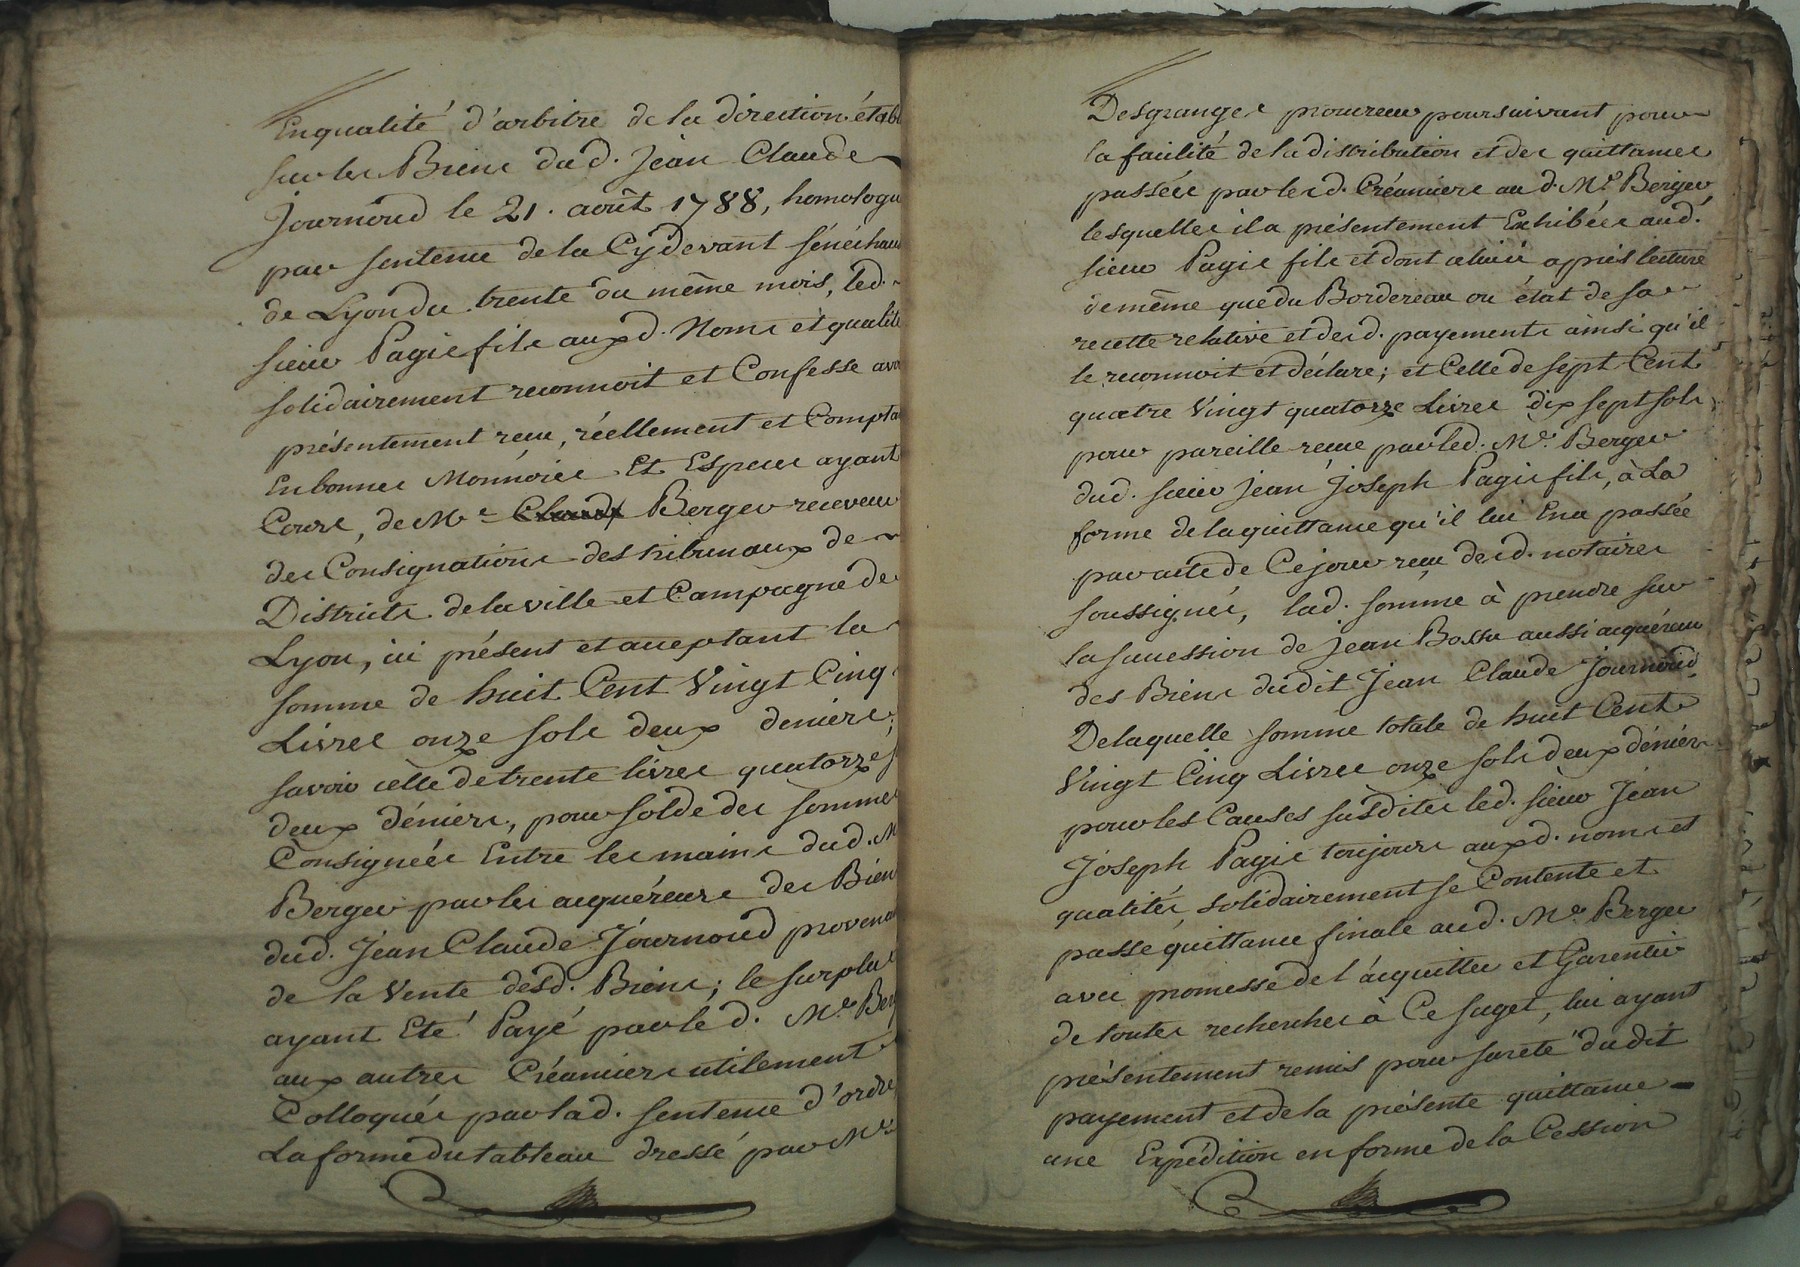 En qualité d'arbitre de la direction établ
sur les Biens dud. Jean Claude
Journoud le 21. août 1788, homologu
par sentence de la Cydevant sénéchau
de Lyon du trente du même mois, led.
sieur Pagis fils auxd. Noms et qualité
solidairement reconnoit et Confesse avo
présentement reçu, réellement et Compta
En bonnes Monnoies Et Especes ayant
Cours, de Me Claude Berger receveur
des Consignations des tribunaux de
Districts de la ville et Campagne de
Lyon, ici présent et acceptant la
somme de huit Cent Vingt Cinq
Livres onze sols deux deniers;
savoir celle de trente livres quatorze s
deux déniers, pour solde des sommes
Consignées Entre les mains dud. M
Berger par les acquéreurs des Biens
dud. Jean Claude Journoud provena
de la Vente desd. Biens; le surplus
ayant Eté Payé par led. Me Berg
aux autres Créanciers utilement
Colloqués par lad. sentence d'ordre
La forme du tableau dressé par Me
Desgranges procureur poursuivant pour
la facilité de la distribution et des quittances
passées par lesd. Créanciers aud. Me Berger
lesquelles il a présentement Exhibées aud.
sieur Pagis fils et dont celui ci après lecture
de même que du Bordereau ou état de sa
recette relative et desd. payements ainsi qu'il
le reconnoit et déclare; et Celle de sept Cent
quatre Vingt quatorze Livres dix sept sols,
pour pareille reçue par led. Me Berger
dud. sieur Jean Joseph Pagis fils, à La
forme de la quittance qu'il lui En a passée
par acte de Ce jour reçu desd. notaires
soussignés, lad. somme à prendre sur
la succession de Jean Bossu aussi acquéreur
des Biens dudit Jean Claude Journoud.
De laquelle somme totale de huit Cent
Vingt Cinq Livres onze sols deux déniers
pour les Causes susdites led. sieur Jean
Joseph Pagis toujours auxd. noms et
qualités, solidairement se Contente et
passe quittance finale aud. Me Berger
avec promesse de l'acquitter et Garentir
de toutes recherches à Ce suget, lui ayant
présentement remis pour sureté dudit
payement et de la présente quittance
une Expédition en forme de la Cession